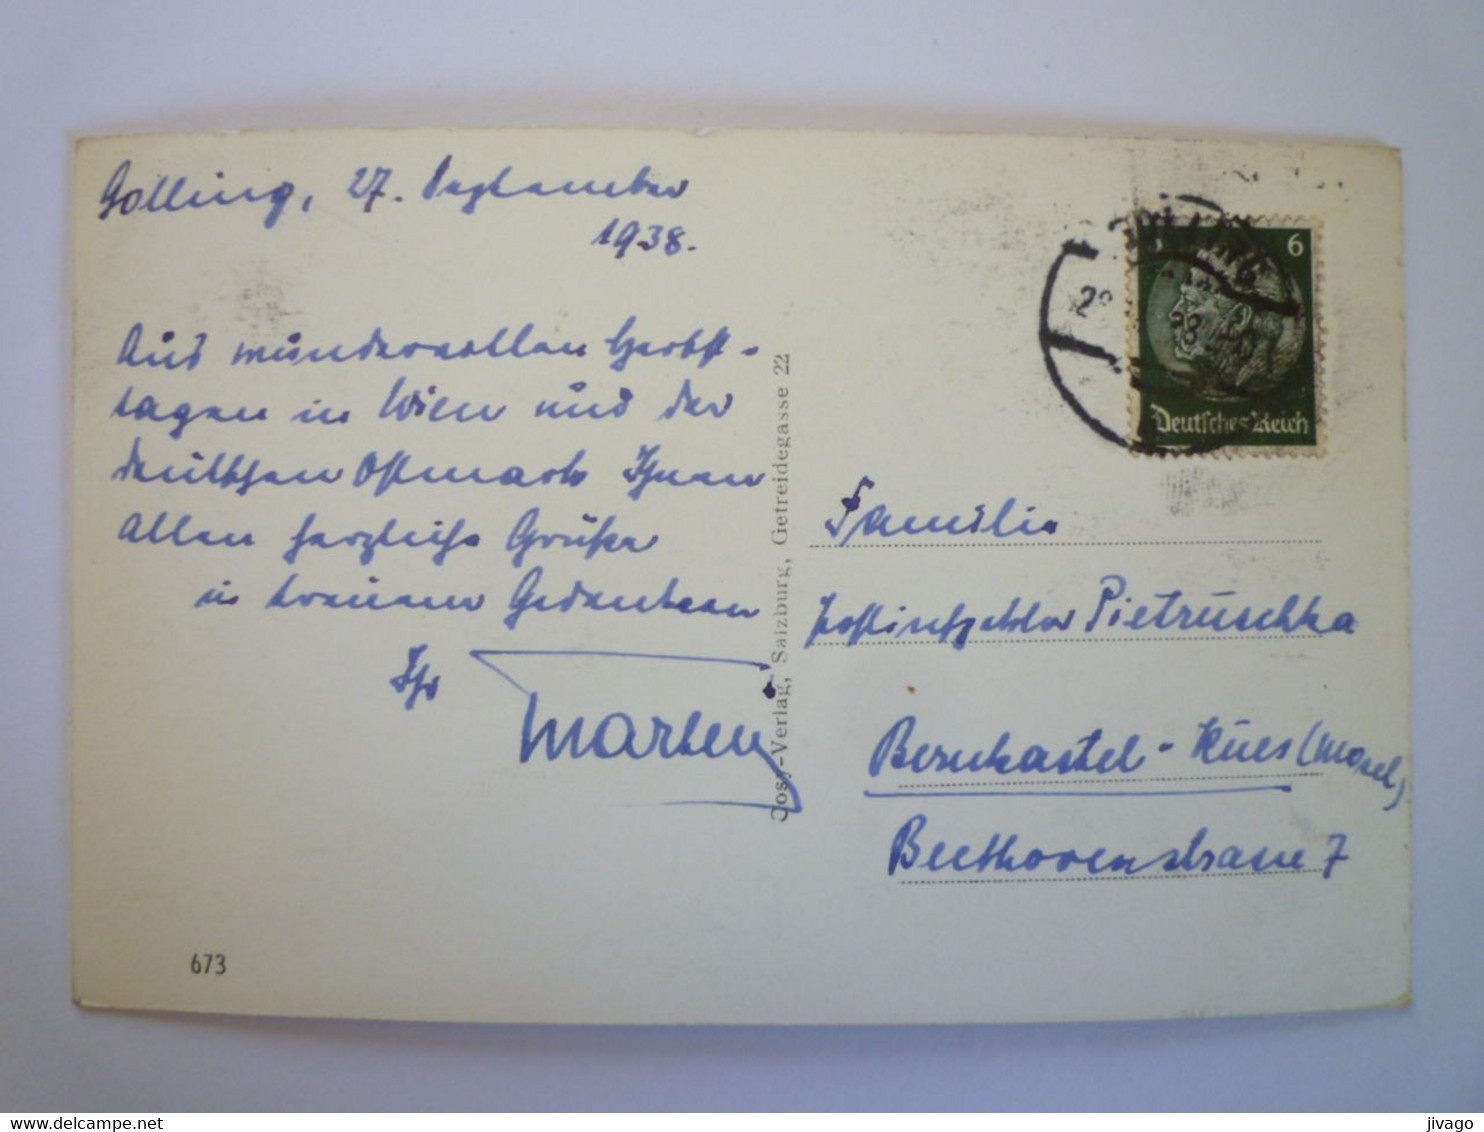 Golling, 27. September
1938.
Aus wundervollen Herbst-
tagen in Wien und der
deutschen Ostmark Ihnen
allen herzliche Grüße
in treuem Gedenken
Ihr
Cosy-Verlag, Salzburg, Getreidegasse 22
6
Deutsches Reich
Familie
Postinspektor Pietruschka
Bernkastel-Kues (Mosel)
Beethovenstrasse 7
673
jivago
delcampe.net